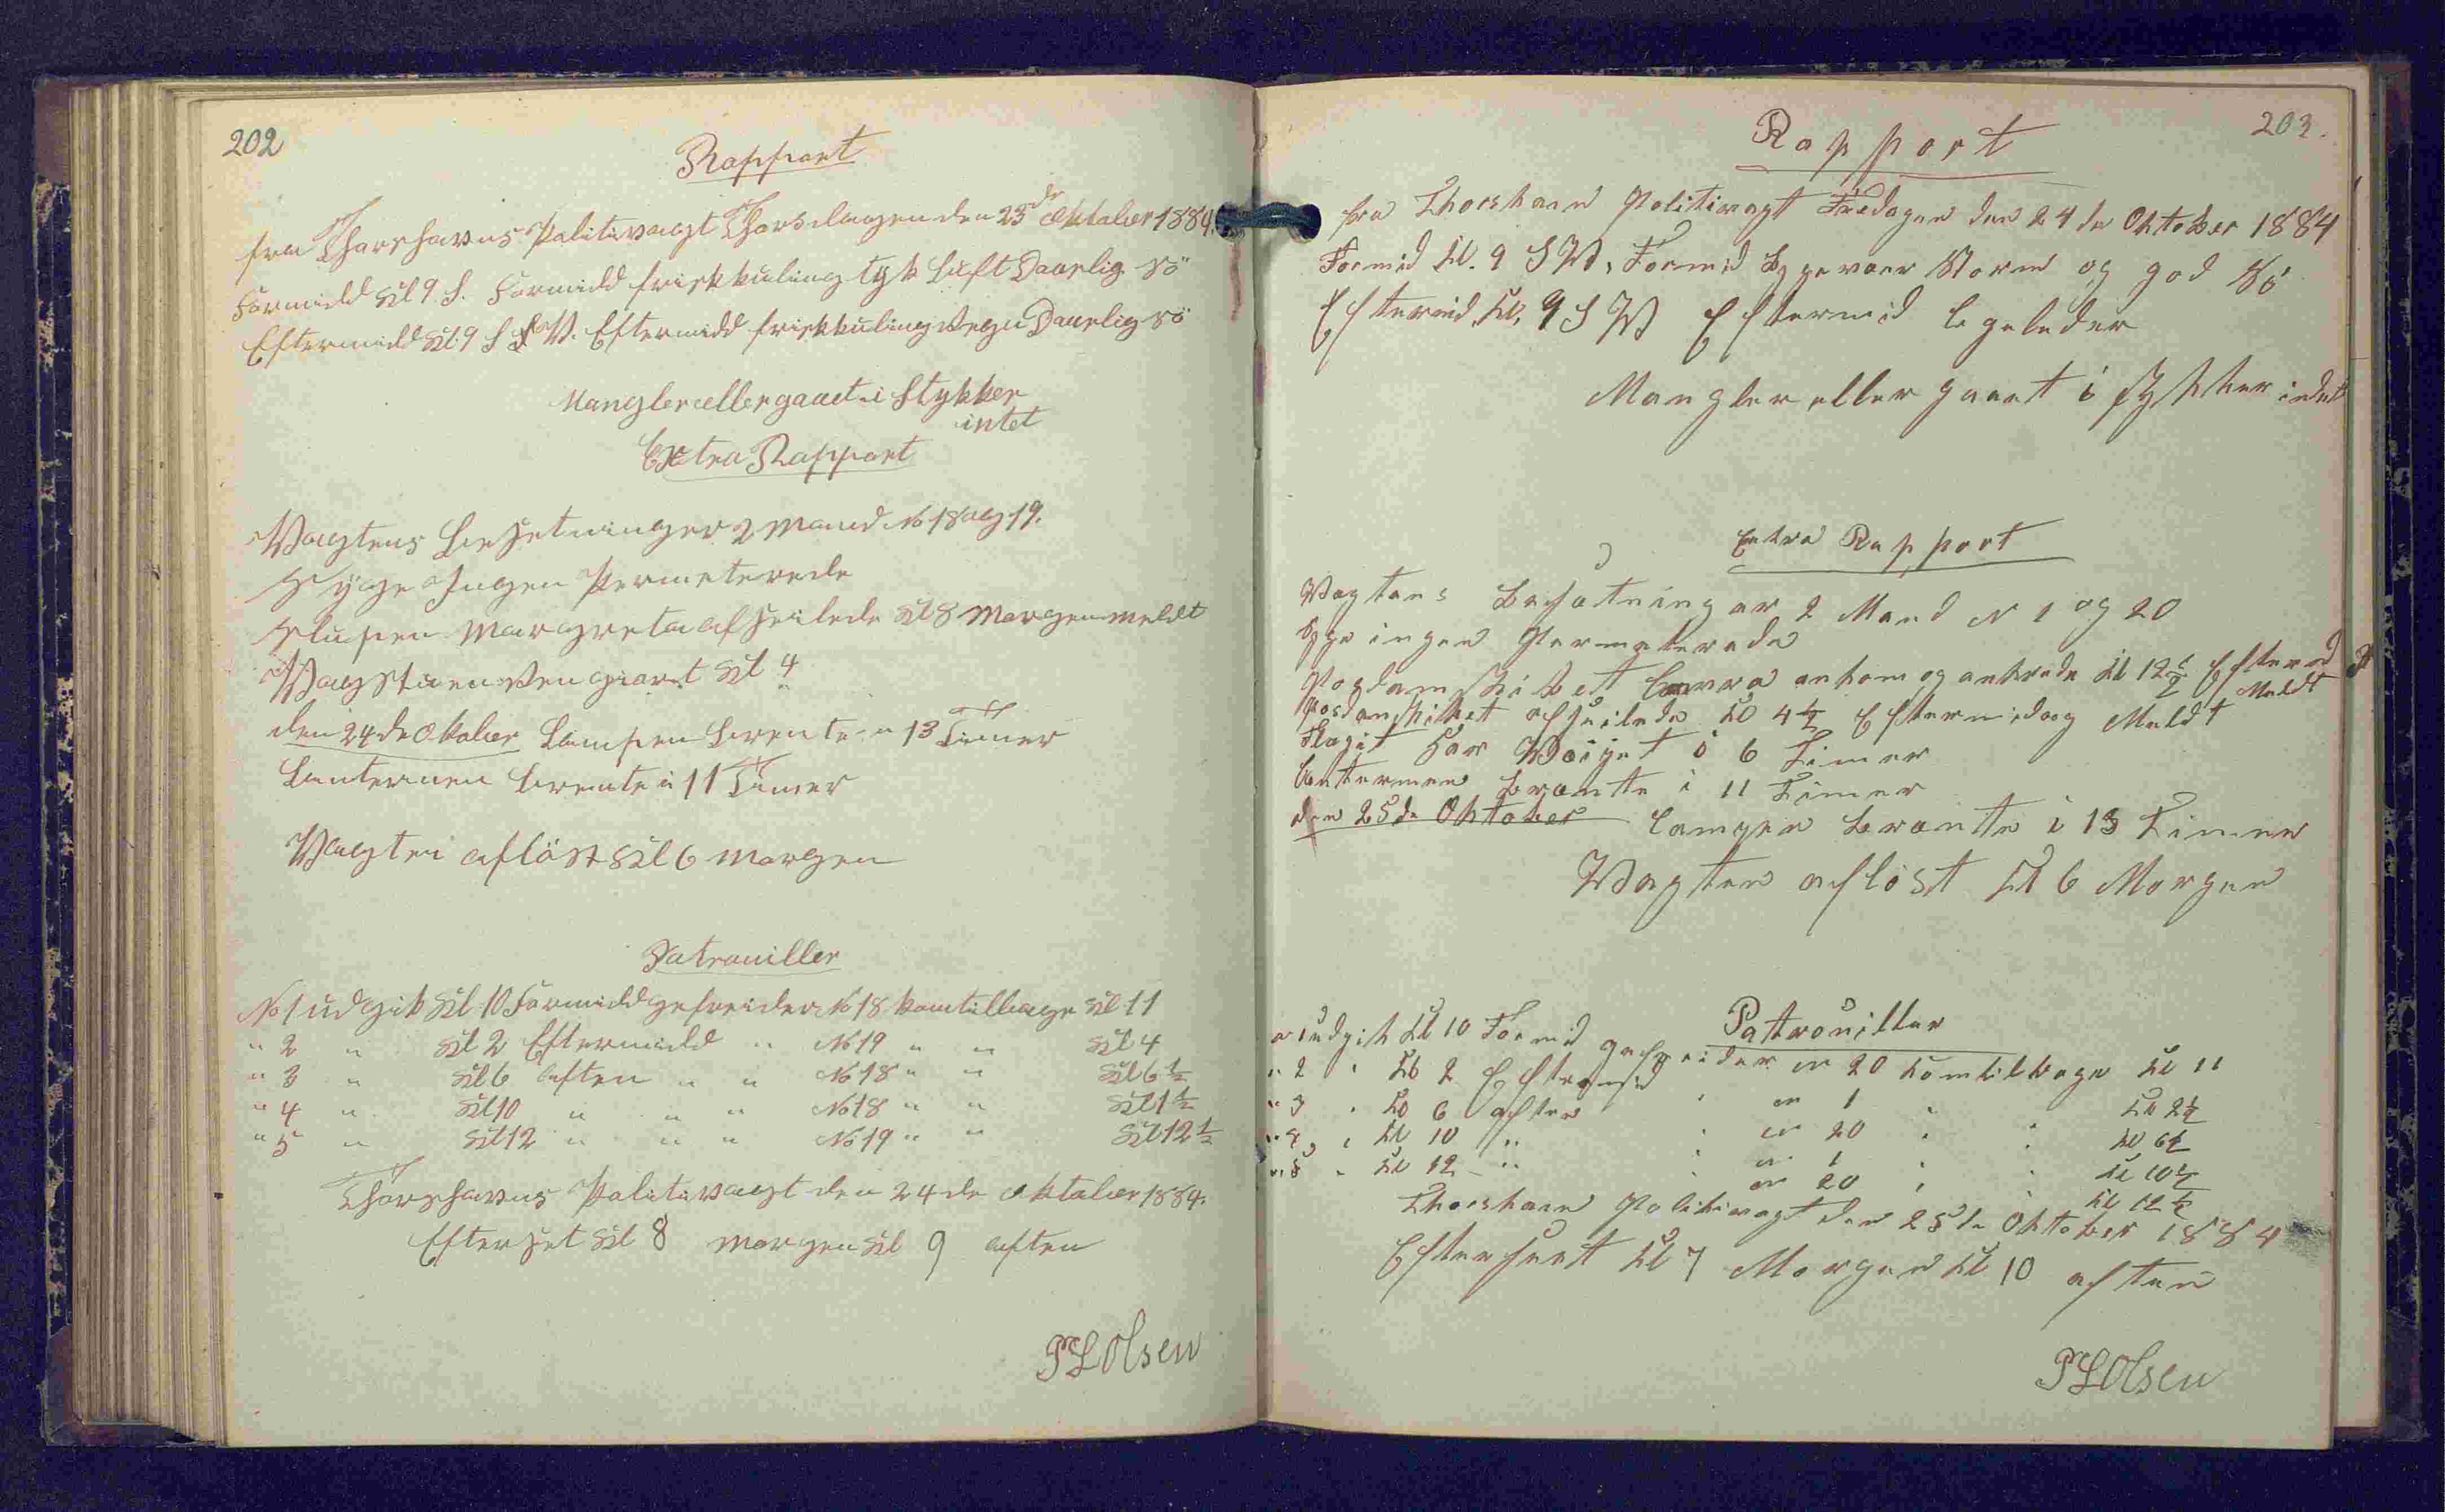 202
Rapport
fra Thorshavns Politivagt Thorsdagen den 23de Oktober 1884.
Formidd Kl 9 S. Formidd frisk kuling tyk Luft Daarlig Sö
Eftermidd Kl. 9 S S W. Eftermidd frisk kuling Regn Daarlig Sö
Mangler eller gaaet i Stykker
intet
Extra Rapport
Vagtens Besetning er 2 Mand No 18 og 19.
Syge Ingen Permeterede
Slupen Margreta afseilede Kl 8 Morgen meldt
Vagstuen Rengjort Kl 4
den 24de Oktober Lampen brente i 13 Timer
Lanternen brente i 11 Timer
Vagten aflöst Kl 6 Morgen
Patrouiller
No 1 udgik Kl 10 Formidd gefreider No 18 kom tilbage Kl 11
" 2 " Kl 2 Eftermidd " No 19 " " Kl 4
" 3 " Kl 6 Aften " " No 18 " " Kl 6 1/2
" 4 " Kl 10 " " " No 18 " " Kl 1 1/2
" 5 " Kl 12 " " " No 19 " " Kl 12 1/2
Thorshavns Politivagt den 24de Oktober 1884.
Efterset Kl 8 Morgen Kl 9 Aften
PL Olsen
203.
Rapport
fra Thorshavn Politivagt Fredagen den 24de Oktober 1884
Formid Kl. 9 S W, Formid Storm og god Sö
Eftermid. Kl. 9 S W Eftermid Ligeleder
Mangler eller gaaet i stykker indet
Extra Rapport
Vagtens Besætning er 2 Mand N 1 og 20
Syge ingen Permeterede
Posdamskibet Laura ankom og ankrede Kl 12 1/2 Eftermd
Meldt
Posdamskibet afseilede Kl 4 1/2 Eftermidag Meldt
Flaget har Vaiet i 6 Timer
Lanternen brænte i 11 Timer
den 25de Oktober Lampen brænte i 13 Timer
Vagten aflöst Kl 6 Morgen
Patrouiller
N 1 udgik Kl 10 Formid gefreider N 20 kom tilbage Kl 11
" 2 " Kl 2 Eftermid " N 1 " " Kl 2 1/2
" 3 " Kl 6 Aften " N 20 " " Kl 6 1/2
" 4 " Kl 10 " " N 1 " " Kl 10 1/2
" 5 " Kl 12 " " N 20 " " Kl 12 1/2
Thorshavn Politivagt den 25de Oktober 1884
Efterseet Kl 7 Morgen Kl 10 aften
PL Olsen